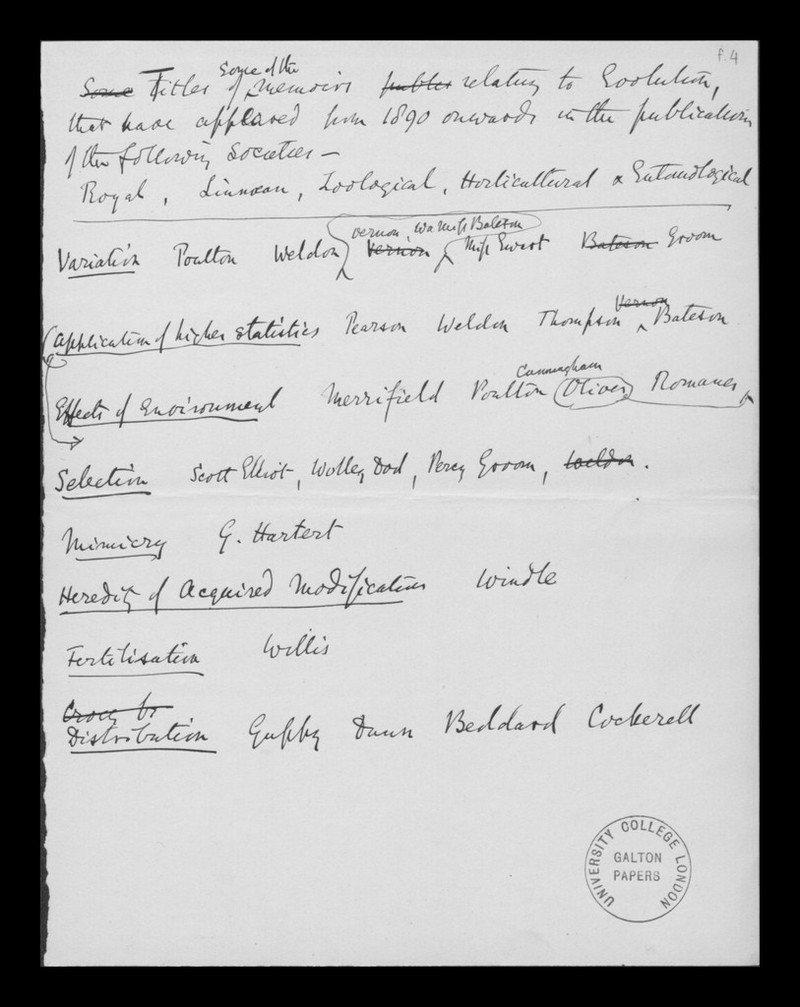 F. 4
Some Titles of Some of the Memoirs publis relating to Evolution,
that have appeared from 1890 onwards in the publications
of the following Societies —
Royal, Linnæan, Zoological, Horticultural & Entomological
Vernon, Miss Bateson
Variation Poulton Weldon Vernon Miss Ewart Bateson Groom
Vernon
Application of higher statistics Pearson Weldon Thompson Bateson
Cunningham
Effects of Environment Merrifield Poulton Oliver Romanes
Selection Scott Elliot, Wolley Dod, Percy Groom, Weldon.
Mimicry G. Hartert
Heredity of Acquired Modifications Windle
Fertilisation Willis
Cross br
Distribution Guppy Dunn Beddard Cockerell
UNIVERSITY COLLEGE LONDON
GALTON
PAPERS